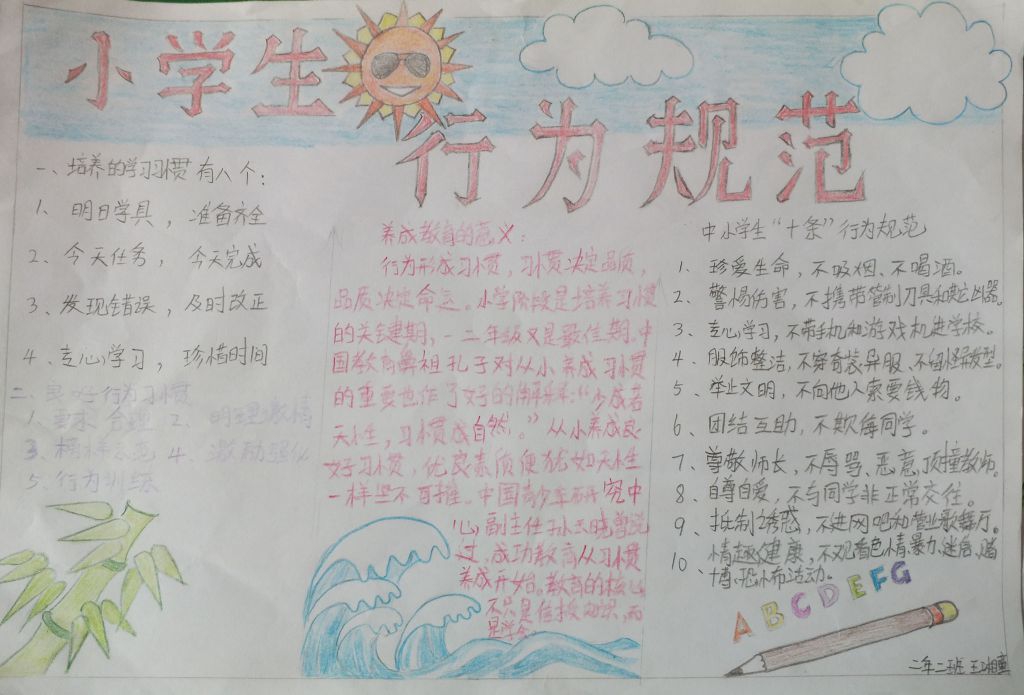 小学生
行为规范
一、培养的学习习惯有八个：
1、明日学具，准备齐全
2、今天任务，今天完成
3、发现错误，及时改正
4、专心学习，珍惜时间
二、良好行为习惯
1、要求合理 2、明理激情
3、榜样示范 4、激励强化
5、行为训练
养成教育的意义：
行为形成习惯，习惯决定品质，
品质决定命运。小学阶段是培养习惯
的关键期，一二年级又是最佳期。中
国教育鼻祖孔子对从小养成习惯
的重要也作了好的解释：“少成若
天性，习惯成自然。”从小养成良
好习惯，优良素质便犹如天性
一样坚不可摧。中国青少年研究中
心副主任孙云晓曾说
过，成功教育从习惯
养成开始。教育的核心
不只是传授知识，而
是学会
中小学生“十条”行为规范
1、珍爱生命，不吸烟、不喝酒。
2、警惕伤害，不携带管制刀具和其它凶器。
3、专心学习，不带手机和游戏机进学校。
4、服饰整洁，不穿奇装异服、不留怪异发型。
5、举止文明，不向他人索要钱物。
6、团结互助，不欺侮同学。
7、尊敬师长，不辱骂、恶意顶撞教师。
8、自尊自爱，不与同学非正常交往。
9、抵制诱惑，不进网吧和营业歌舞厅。
10、情趣健康，不观看色情、暴力、迷信、赌
博、恐怖活动。
ABCDEFG
二年二班 王